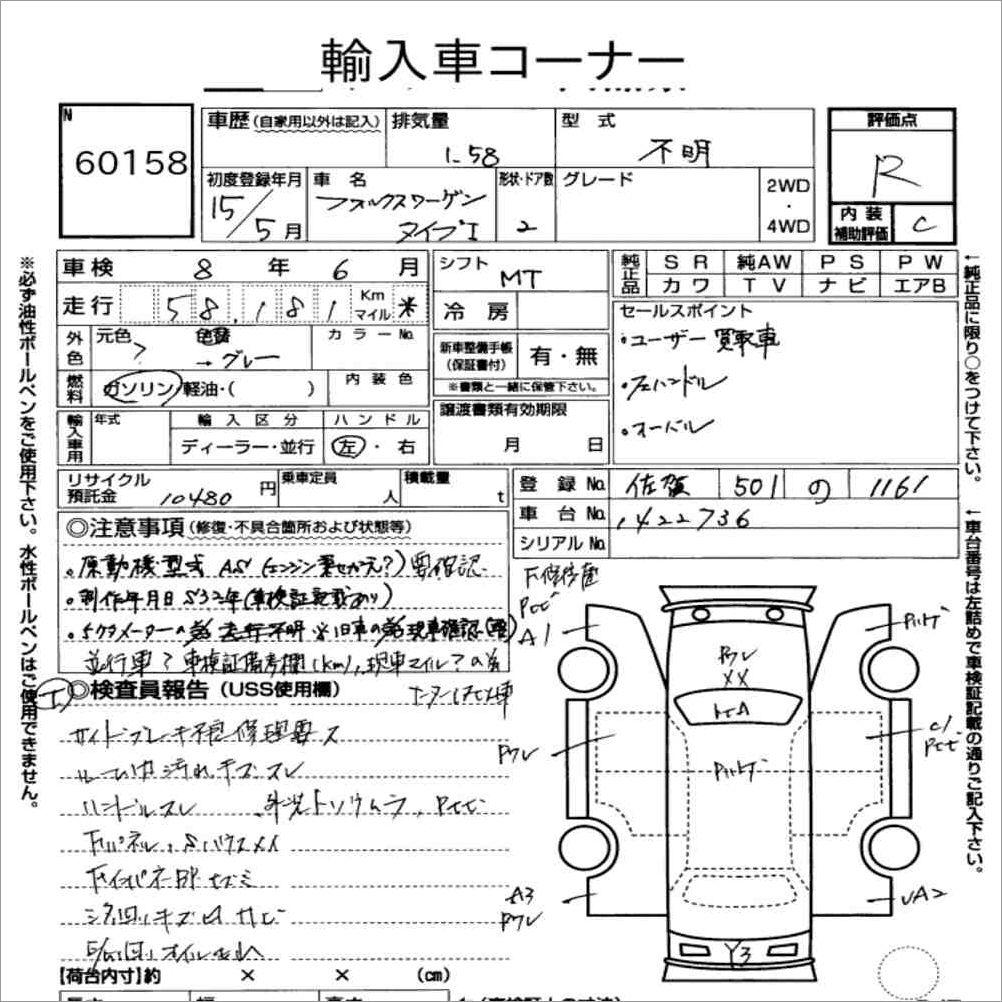 輸入車コーナー
N
60158
車歴(自家用以外は記入)
排気量
1.58
型式
不明
評価点
R
初度登録年月
15/5月
車名
フォルクスワーゲン
タイプI
形状・ドア数
2
グレード
2WD
・
4WD
内装
補助評価
C
車検 8年6月
シフト MT
純正品
SR 純AW PS PW
カワ TV ナビ エアB
走行 58,181 Km マイル *
冷房
セールスポイント
・ユーザー買取車
・フェハンドル
・オードル
外色
元色 ?
色替 →グレー
カラーNo.
新車整備手帳
(保証書付)
有・無
※書類と一緒に保管下さい。
燃料
ガソリン/軽油・( )
内装色
譲渡書類有効期限
月 日
輸入車用
年式
輸入区分
ディーラー・並行
ハンドル
左・右
リサイクル
預託金 10480円
乗車定員
人
積載量
t
登録No. 佐賀 501 の 1161
車台No. 1422736
シリアルNo.
※必ず油性ボールペンをご使用下さい。水性ボールペンはご使用できません。
←純正品に限り○をつけて下さい。
←車台番号は左詰めで車検証記載の通りご記入下さい。
◎注意事項(修復・不具合箇所および状態等)
・原動機型式 AS(エンジン乗せかえ?)要確認
・制作年月日S32年(車検証記載あり)
・5ケタメーターの為走行不明 ※旧車の為現車確認(要)
並行車?車検証備考欄(km)、現車マイル?の為
◎検査員報告(USS使用欄)
サイドブレーキ不良 修理要ス
ルーム内汚れキズスレ
ハンドルスレ
外装トソウムラ、
シタ回りキズ凹サビ
E/G回りオイル
A1
Pワレ
XX
A3
Pワレ
Y3
【荷台内寸】約 × × (cm)